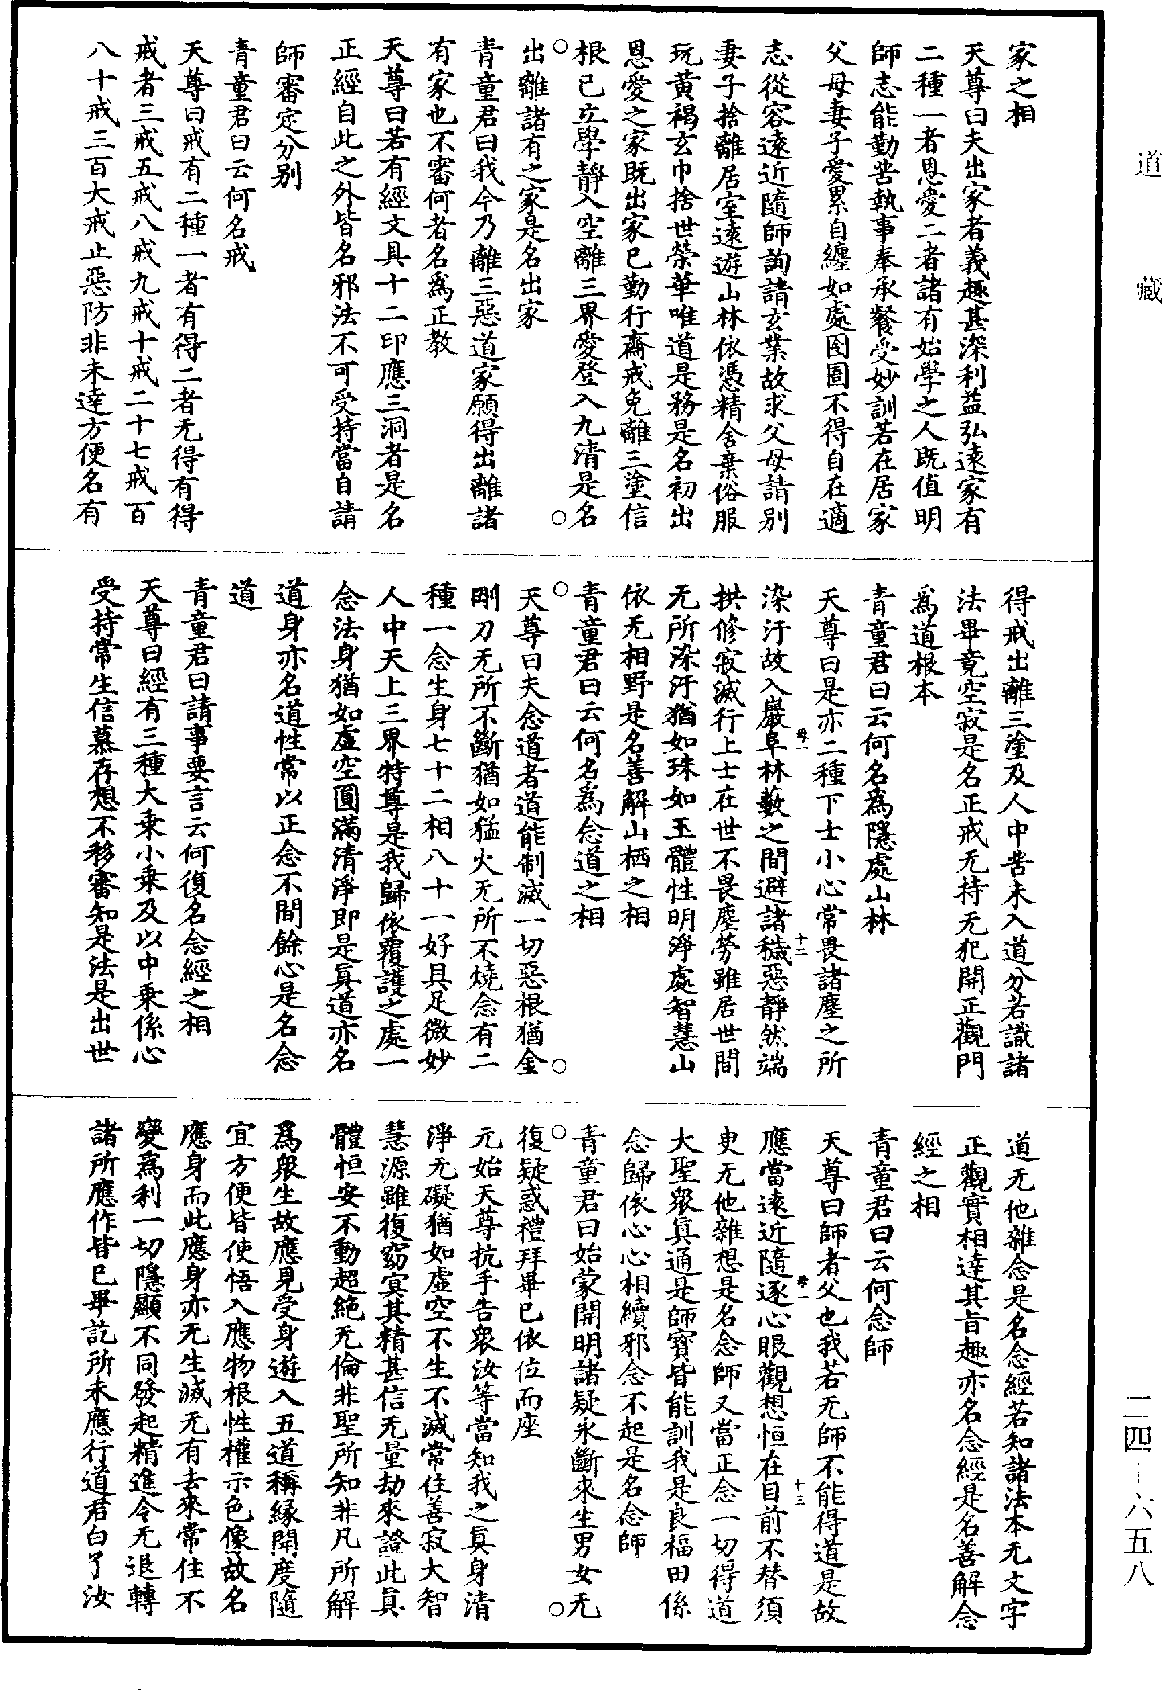 道藏
家之相
天尊曰夫出家者義趣甚深利益弘遠家有
二種一者恩愛二者諸有始學之人既值明
師志能勤苦執事奉承餐受妙訓若在居家
父母妻子愛累自纏如處囹圄不得自在適
志從容遠近隨師詢請玄業故求父母請別
妻子捨離居室遠遊山林依憑精舍棄俗服
玩黃褐玄巾捨世榮華唯道是務是名初出
恩愛之家既出家已勤行齋戒免離三塗信
根已立學靜入空離三界愛登入九清是名
出離諸有之家是名出家
青童君曰我今乃離三惡道家願得出離諸
有家也不審何者名爲正教
天尊曰若有經文具十二印應三洞者是名
正經自此之外皆名邪法不可受持當自請
師審定分別
青童君曰云何名戒
天尊曰戒有二種一者有得二者无得有得
戒者三戒五戒八戒九戒十戒二十七戒百
八十戒三百大戒止惡防非未達方便名有
得戒出離三塗及人中苦未入道分若識諸
法畢竟空寂是名正戒无持无犯開正觀門
爲道根本
青童君曰云何名爲隱處山林
天尊曰是亦二種下士小心常畏諸塵之所
染汙故入巖阜林藪之間避諸穢惡靜然端
拱修寂滅行上士在世不畏塵勞雖居世間
无所染汙猶如珠如玉體性明淨處智慧山
依无相野是名善解山栖之相
青童君曰云何名爲念道之相
天尊曰夫念道者道能制滅一切惡根猶金
剛刀无所不斷猶如猛火无所不燒念有二
種一念生身七十二相八十一好具足微妙
人中天上三界特尊是我歸依覆護之處一
念法身猶如虛空圓滿清淨即是真道亦名
道身亦名道性常以正念不間餘心是名念
道
青童君曰請事要言云何復名念經之相
天尊曰經有三種大乘小乘及以中乘係心
受持常生信慕存想不移審知是法是出世
道无他雜念是名念經若知諸法本无文字
正觀實相達其旨趣亦名念經是名善解念
經之相
青童君曰云何念師
天尊曰師者父也我若无師不能得道是故
應當遠近隨逐心眼觀想恒在目前不替須
臾无他雜想是名念師又當正念一切得道
大聖眾真通是師寶皆能訓我是良福田係
念歸依心心相續邪念不起是名念師
青童君曰始蒙開明諸疑永斷來生男女无
復疑惑禮拜畢已依位而座
元始天尊抗手告眾汝等當知我之真身清
淨无礙猶如虛空不生不滅常住善寂大智
慧源雖復窈冥其精甚信无量劫來證此真
體恒安不動超絕无倫非聖所知非凡所解
爲眾生故應見受身遊入五道稱緣開度隨
宜方便皆使悟入應物根性權示色像故名
應身而此應身亦无生滅无有去來常住不
變爲利一切隱顯不同發起精進令无退轉
諸所應作皆已畢訖所未應行道君白了汝
二四—六五八